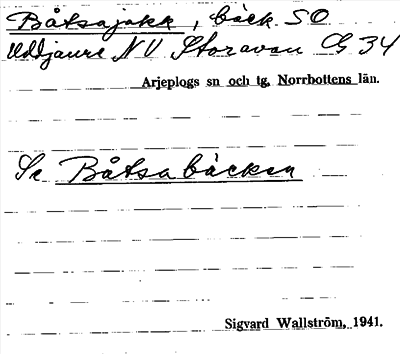 Båtsajåkk, bäck SO
Uddjaure NV Storavan G 34
Arjeplogs sn och tg, Norrbottens län.
Se Båtsabäcken
Sigvard Wallström, 1941.